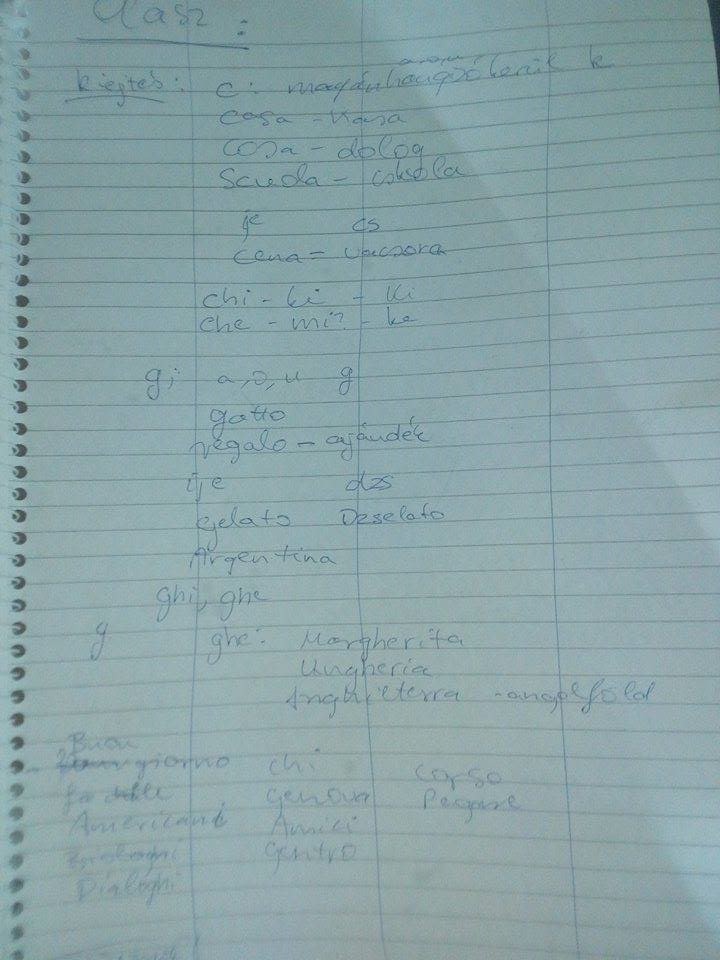 Olasz :
Kiejtés: c: magánhangzó k
casa - Kasa
cosa - dolog
Scuola - iskola
i,e cs
cena = vacsora
chi - ki - Ki
che - mi? - ke
g; a, o, u g
gatto
regalo - ajándék
i,e dzs
gelato Dzselato
Argentina
ghi, ghe
g ghe: Margherita
Ungheria
Inghilterra - angolföld
Buon
giorno chi corso
Genova Pagare
Americani Amici
Centro
Dialoghi